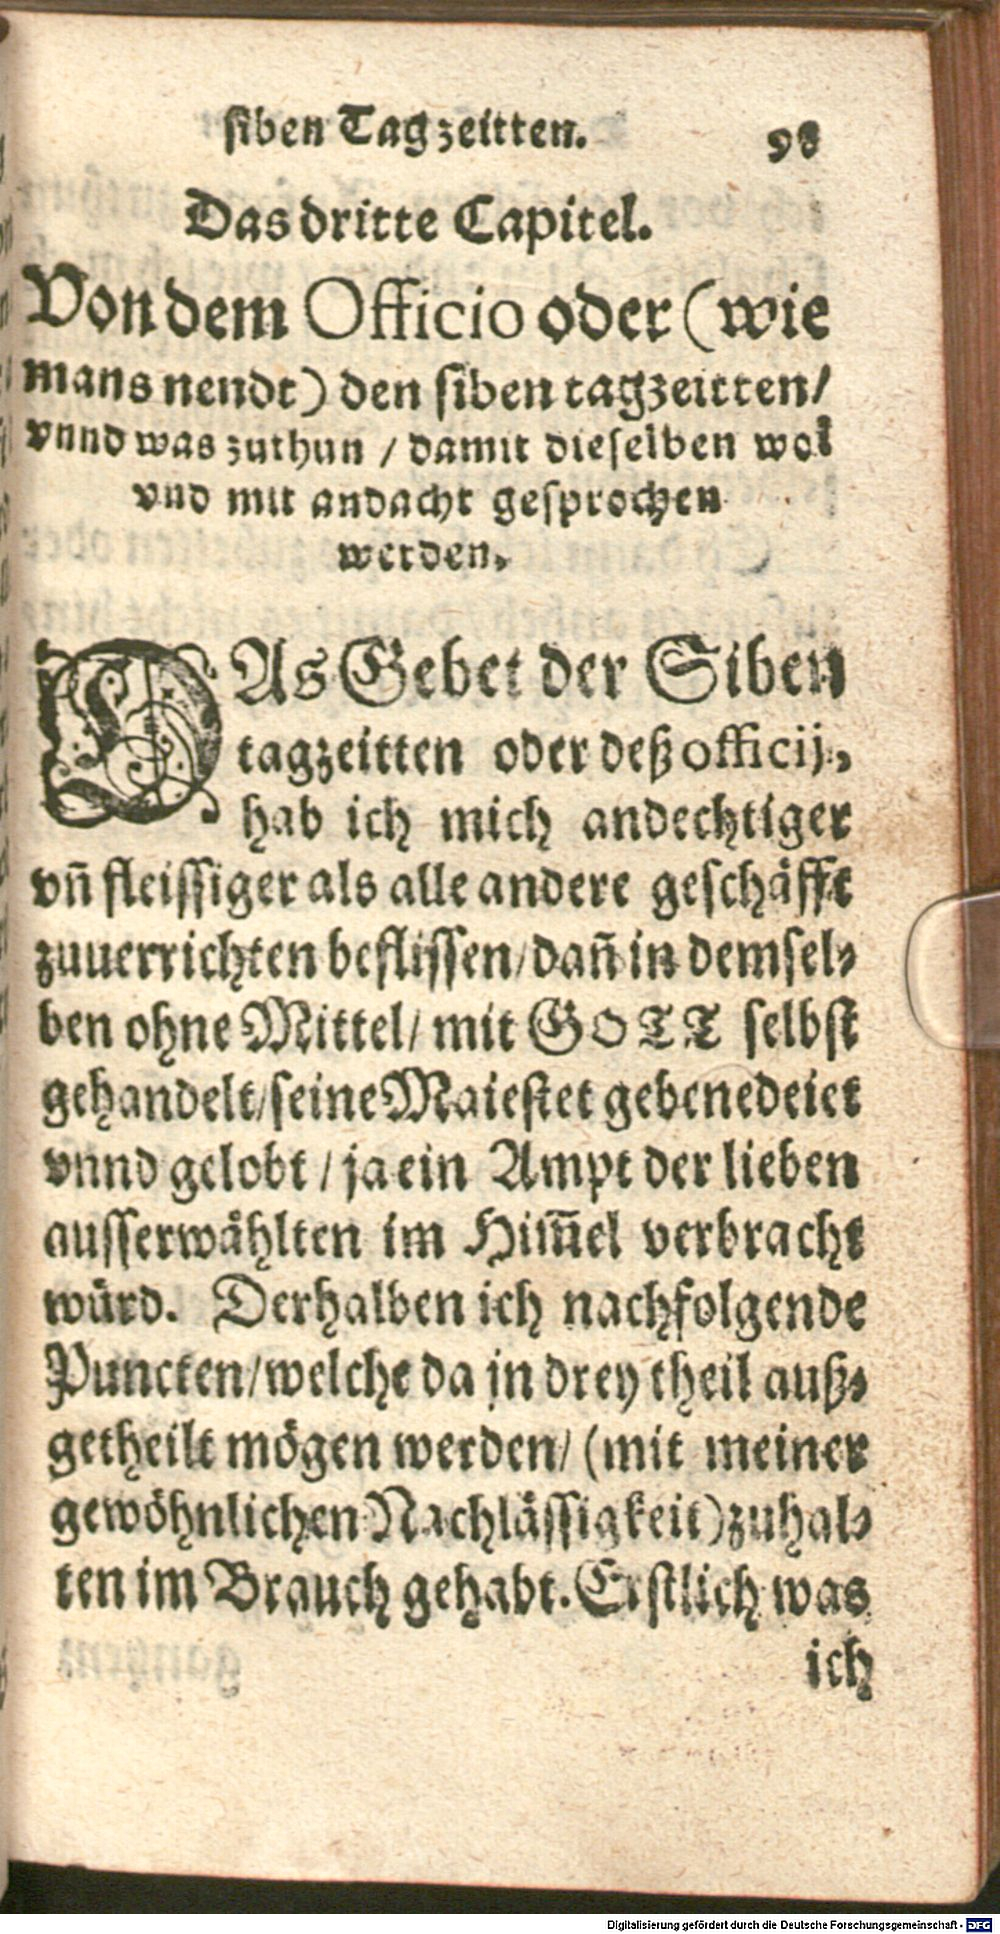 siben Tagzeitten. 98
Das dritte Capitel.
Von dem Officio oder (wie
mans nendt) den siben tagzeitten/
vnnd was zuthun / damit dieselben wol
vnd mit andacht gesprochen
werden.
DAs Gebet der Siben
tagzeitten oder deß officij,
hab ich mich andechtiger
vñ fleissiger als alle andere geschäfft
zuuerrichten beflissen/ dañ in demsel-
ben ohne Mittel/ mit GOTT selbst
gehandelt/ seine Maiestet gebenedeiet
vnnd gelobt / ja ein Ampt der lieben
ausserwählten im Him̃el verbracht
würd. Derhalben ich nachfolgende
Puncten/ welche da in drey theil auß-
getheilt mögen werden/ (mit meiner
gewöhnlichen Nachlässigkeit) zuhal-
ten im Brauch gehabt. Erstlich was
ich
Digitalisierung gefördert durch die Deutsche Forschungsgemeinschaft - DFG